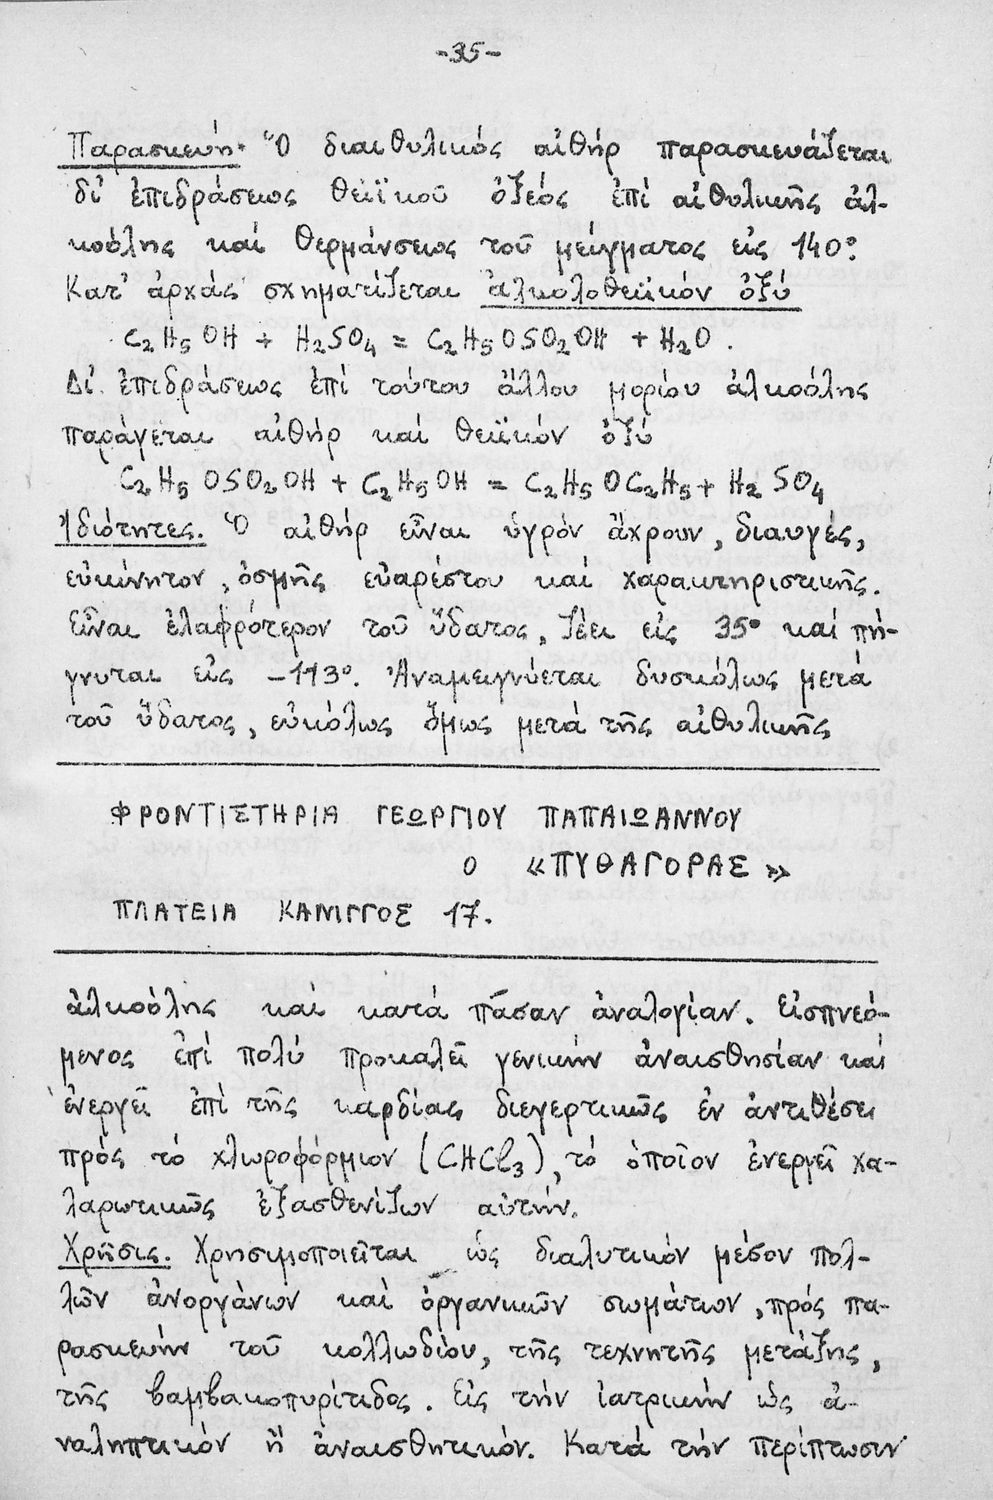 -35-
Παρασκευή. Ὁ διαιθυλικός αἰθήρ παρασκευάζεται
δι' ἐπιδράσεως θειϊκοῦ ὀξέος ἐπί αἰθυλικῆς ἀλ-
κοόλης καί θερμάνσεως τοῦ μείγματος εἰς 140°.
Κατ' ἀρχάς σχηματίζεται ἀλκολοθειϊκόν ὀξύ
C₂H₅OH + H₂SO₄ = C₂H₅OSO₂OH + H₂O.
Δι' ἐπιδράσεως ἐπί τούτου ἄλλου μορίου ἀλκοόλης
παράγεται αἰθήρ καί θειϊκόν ὀξύ
C₂H₅OSO₂OH + C₂H₅OH = C₂H₅OC₂H₅ + H₂SO₄
Ἰδιότητες. Ὁ αἰθήρ εἶναι ὑγρόν ἄχρουν, διαυγές,
εὐκίνητον, ὀσμῆς εὐαρέστου καί χαρακτηριστικῆς.
Εἶναι ἐλαφρότερον τοῦ ὕδατος, ζέει εἰς 35° καί πή-
γνυται εἰς -113°. Ἀναμειγνύεται δυσκόλως μετά
τοῦ ὕδατος, εὐκόλως ὅμως μετά τῆς αἰθυλικῆς
ΦΡΟΝΤΙΣΤΗΡΙΑ ΓΕΩΡΓΙΟΥ ΠΑΠΑΙΩΑΝΝΟΥ
Ο «ΠΥΘΑΓΟΡΑΣ»
ΠΛΑΤΕΙΑ ΚΑΝΙΓΓΟΣ 17.
ἀλκοόλης καί κατά πᾶσαν ἀναλογίαν. Εἰσπνεό-
μενος ἐπί πολύ προκαλεῖ γενικήν ἀναισθησίαν καί
ἐνεργεῖ ἐπί τῆς καρδίας διεγερτικῶς ἐν ἀντιθέσει
πρός τό χλωροφόρμιον (CHCl₃), τό ὁποῖον ἐνεργεῖ χα-
λαρωτικῶς ἐξασθενίζων αὐτήν.
Χρῆσις. Χρησιμοποιεῖται ὡς διαλυτικόν μέσον πολ-
λῶν ἀνοργάνων καί ὀργανικῶν σωμάτων, πρός πα-
ρασκευήν τοῦ κολλωδίου, τῆς τεχνητῆς μετάξης,
τῆς βαμβακοπυρίτιδος. Εἰς τήν ἰατρικήν ὡς ἀ-
ναληπτικόν ἤ ἀναισθητικόν. Κατά τήν περίπτωσιν